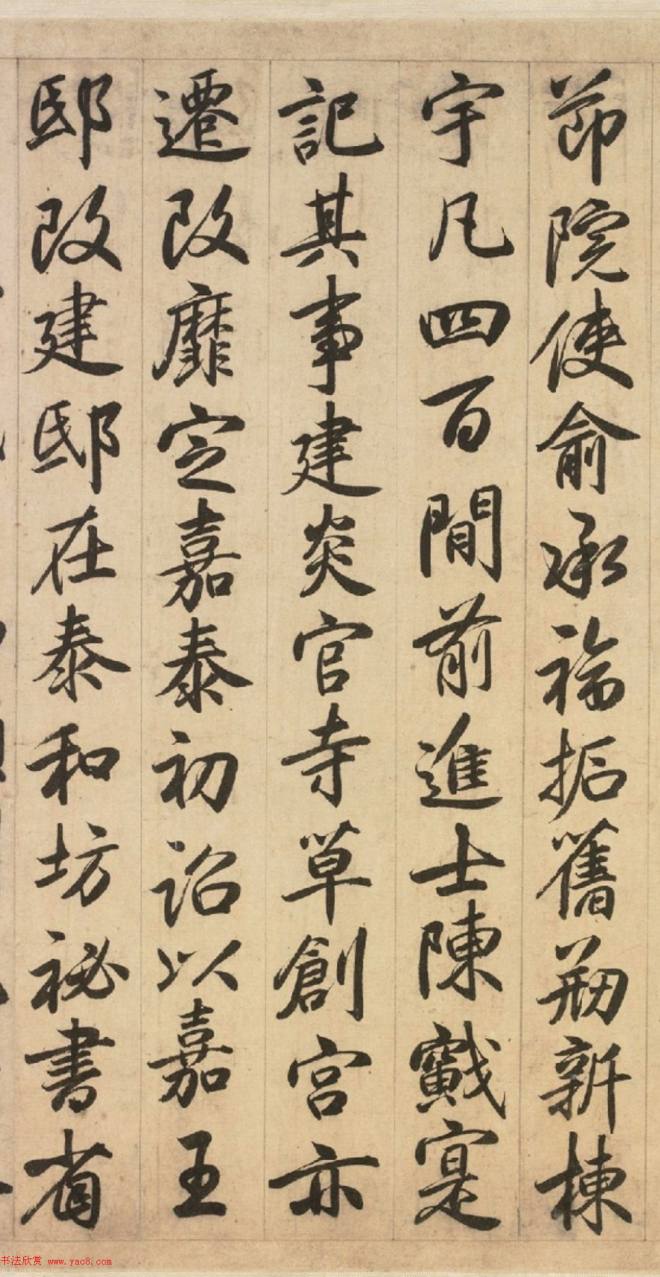 莭院使俞承福拓舊刱新棟
宇凡四百間前進士陳戭寔
記其事建炎官寺草創宫亦
遷改靡定嘉泰初詔以嘉王
邸改建邸在泰和坊祕書省
书法欣赏 www.yac8.com